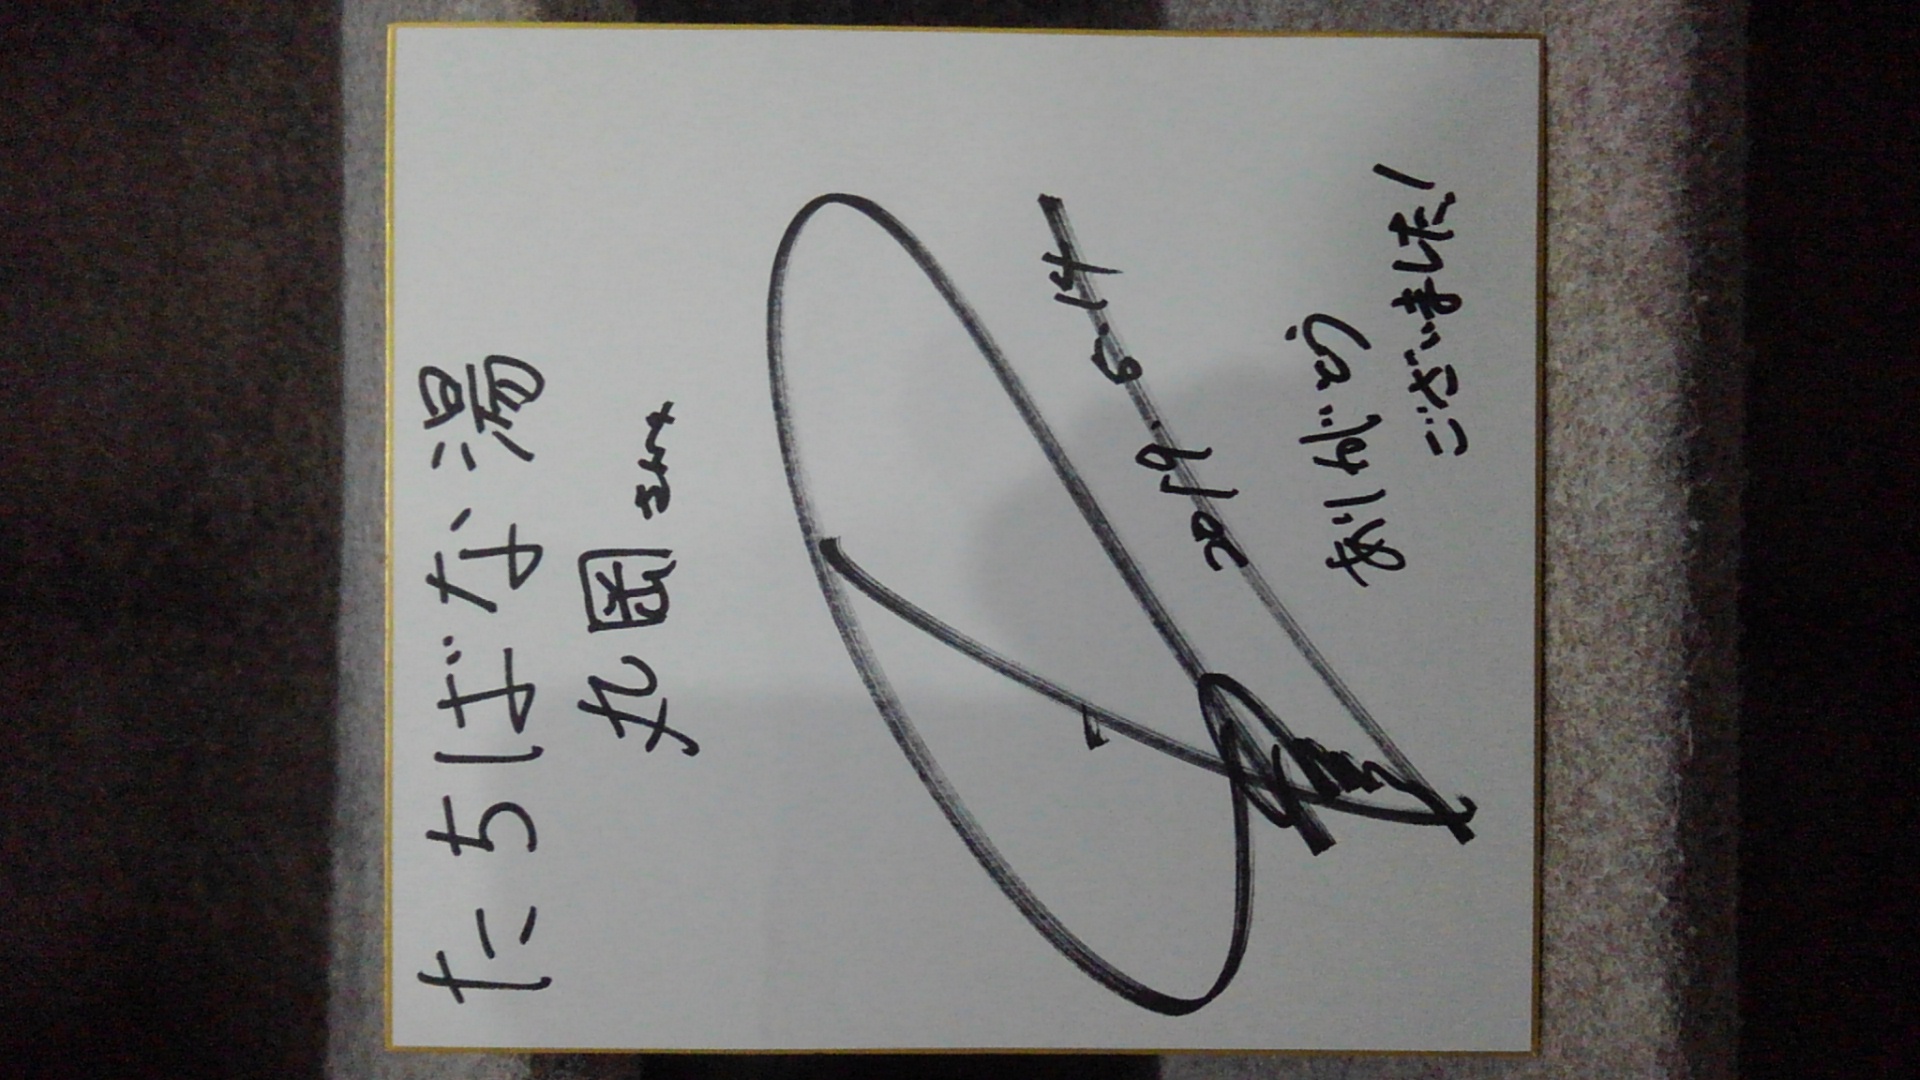 たちばな湯
丸岡さんへ
2019.6.14
ありがとう
ございました!